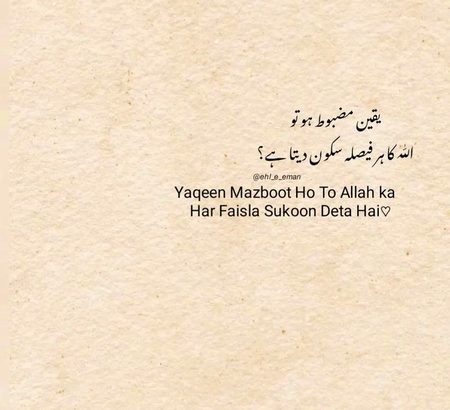 یقین مضبوط ہو تو
اللہ کا ہر فیصلہ سکون دیتا ہے؟
@ehl_e_eman
Yaqeen Mazboot Ho To Allah ka
Har Faisla Sukoon Deta Hai♡